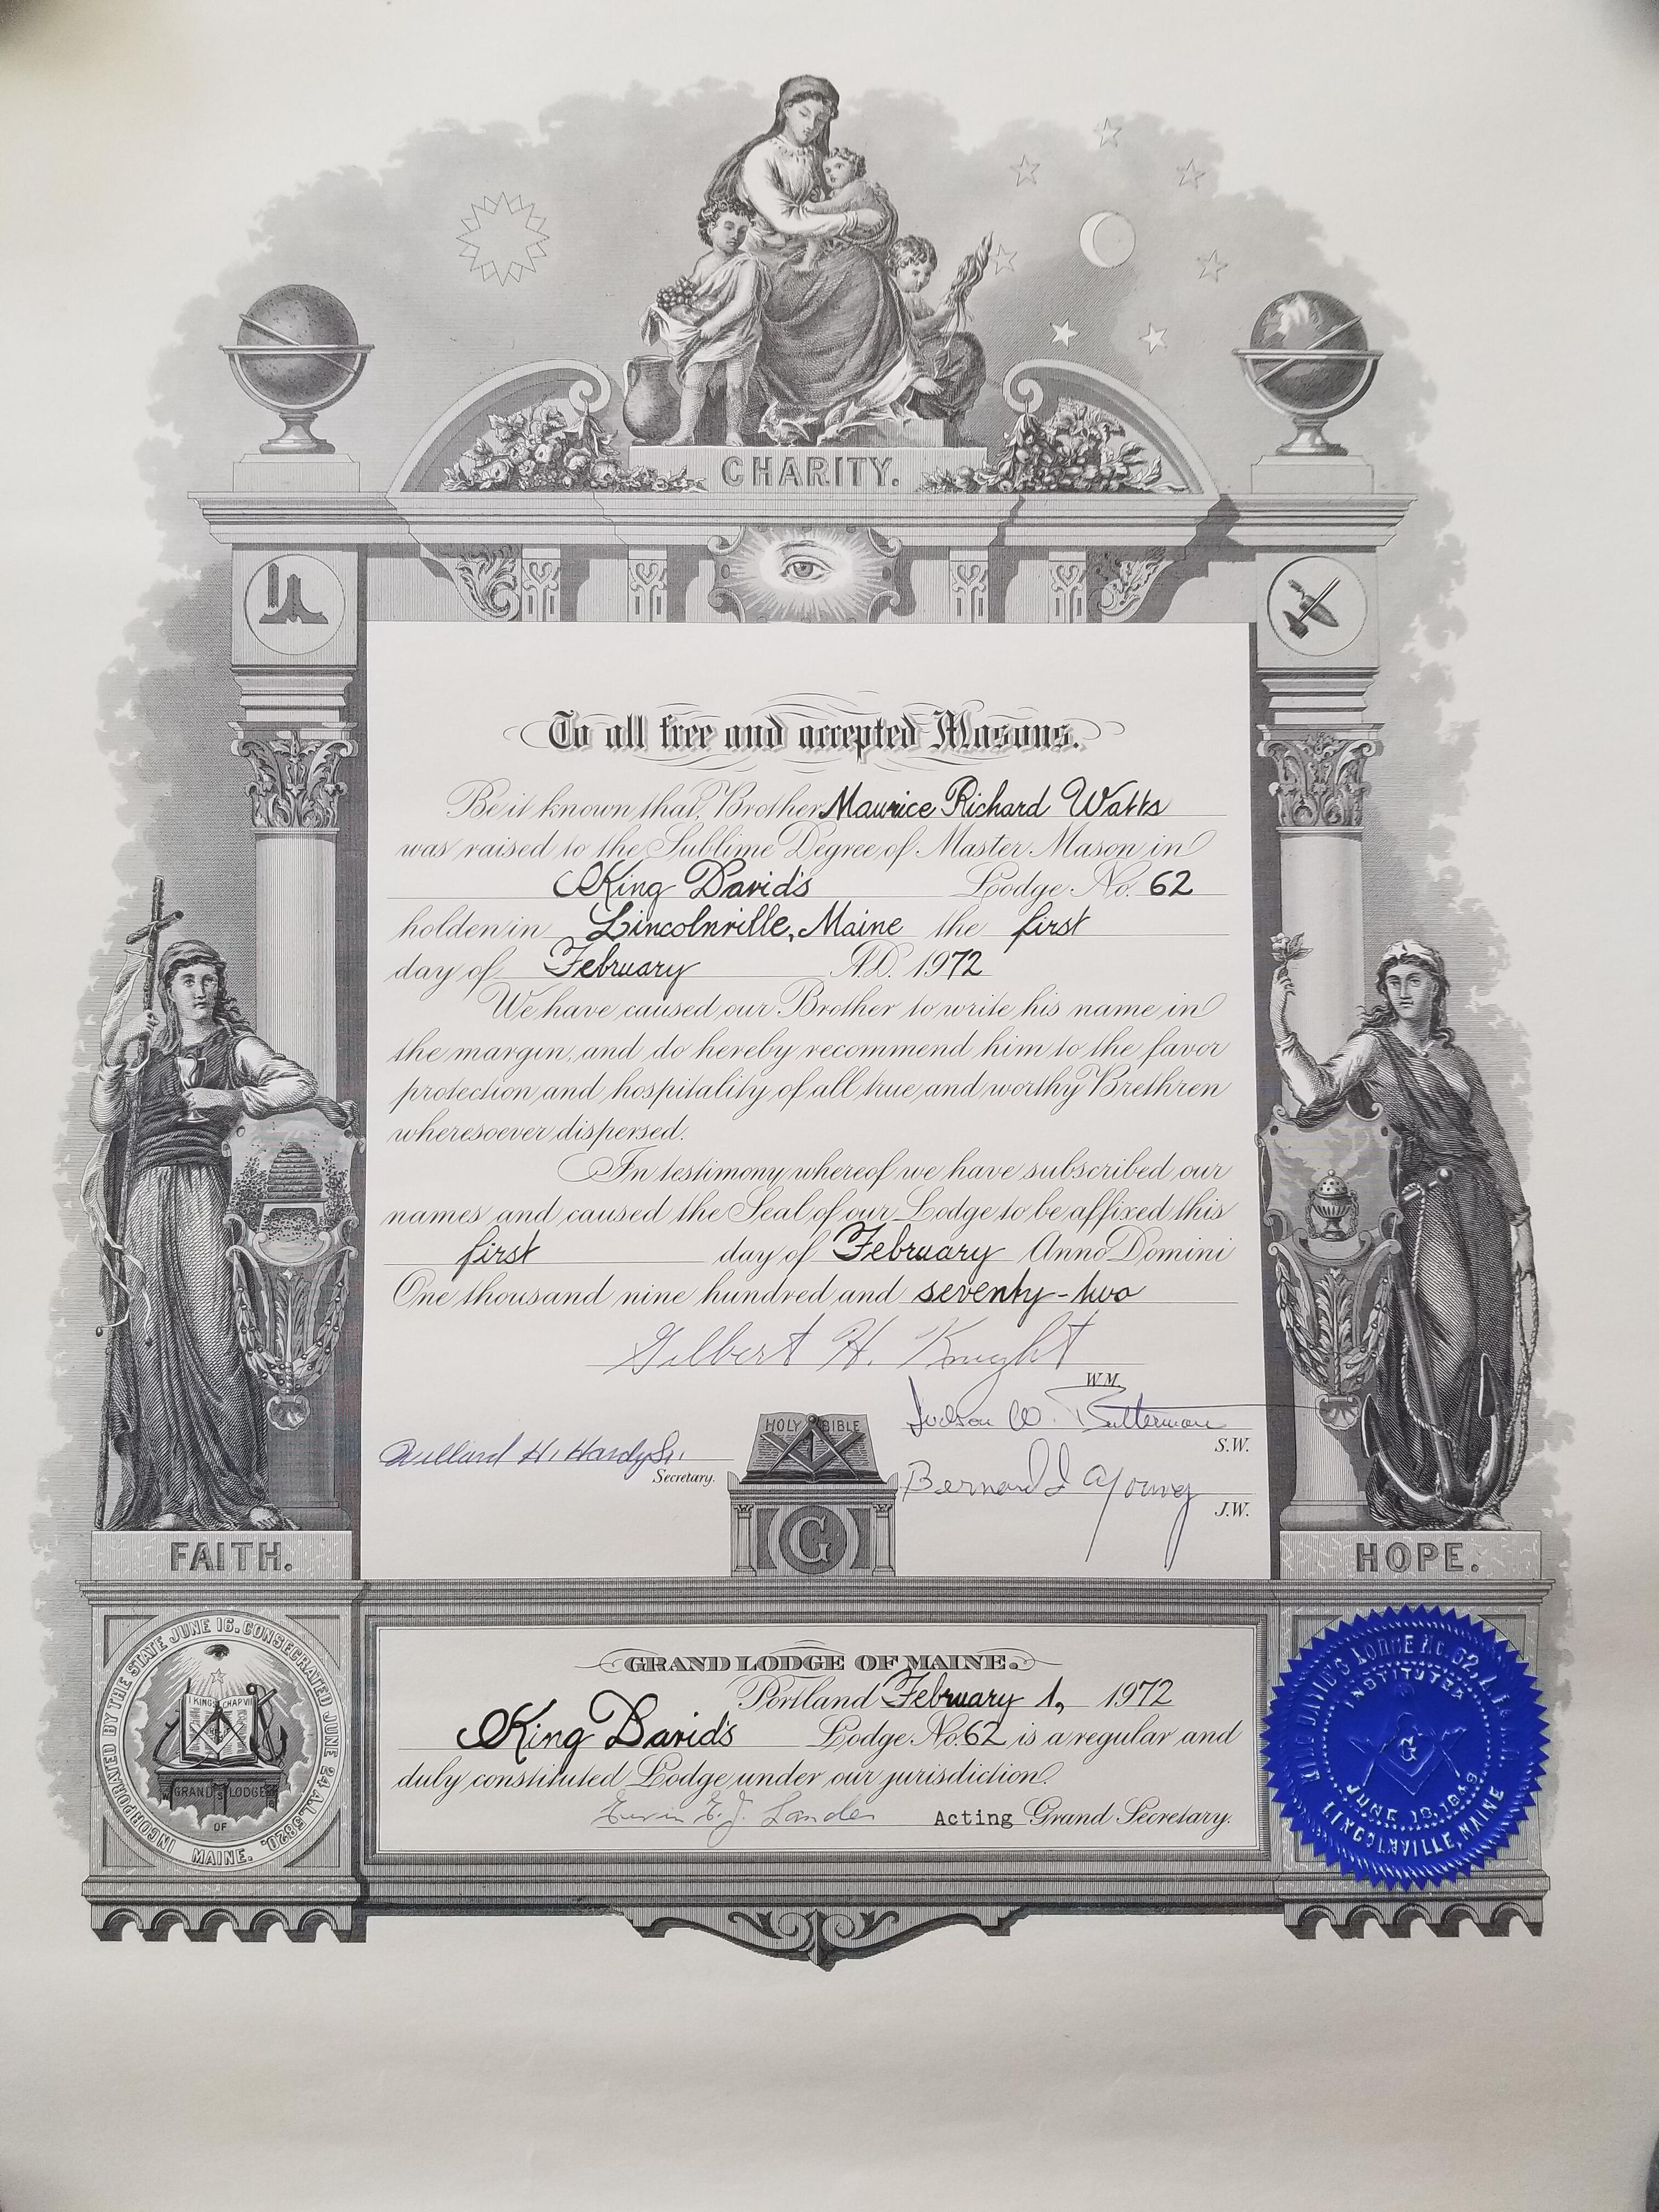 CHARITY.
To all free and accepted Masons.
Be it known that, Brother Maurice Richard Watts
was raised to the Sublime Degree of Master Mason in
King David's Lodge No. 62
holden in Lincolnville, Maine the first
day of February A.D. 1972
We have caused our Brother to write his name in
the margin, and do hereby recommend him to the favor
protection and hospitality of all true and worthy Brethren
wheresoever dispersed.
In testimony whereof we have subscribed our
names and caused the Seal of our Lodge to be affixed this
first day of February Anno Domini
One thousand nine hundred and seventy-two
Gilbert H. Knight
W.M.
Judson W.
S.W.
Willard H. Hardy Sr.
Secretary.
HOLY BIBLE
Bernard J Young
J.W.
G
FAITH.
HOPE.
INCORPORATED BY THE STATE JUNE 16. CONSECRATED JUNE 24 A.L. 5820.
I KINGS CHAP VII
GRAND LODGE
OF
MAINE.
GRAND LODGE OF MAINE.
Portland February 1, 1972
King David's Lodge No. 62 is a regular and
duly constituted Lodge under our jurisdiction.
E. J. Lander Acting Grand Secretary.
KING DAVID'S LODGE No. 62, A.F. & A.M.
INSTITUTED
G
JUNE 18, 1849
LINCOLNVILLE, MAINE